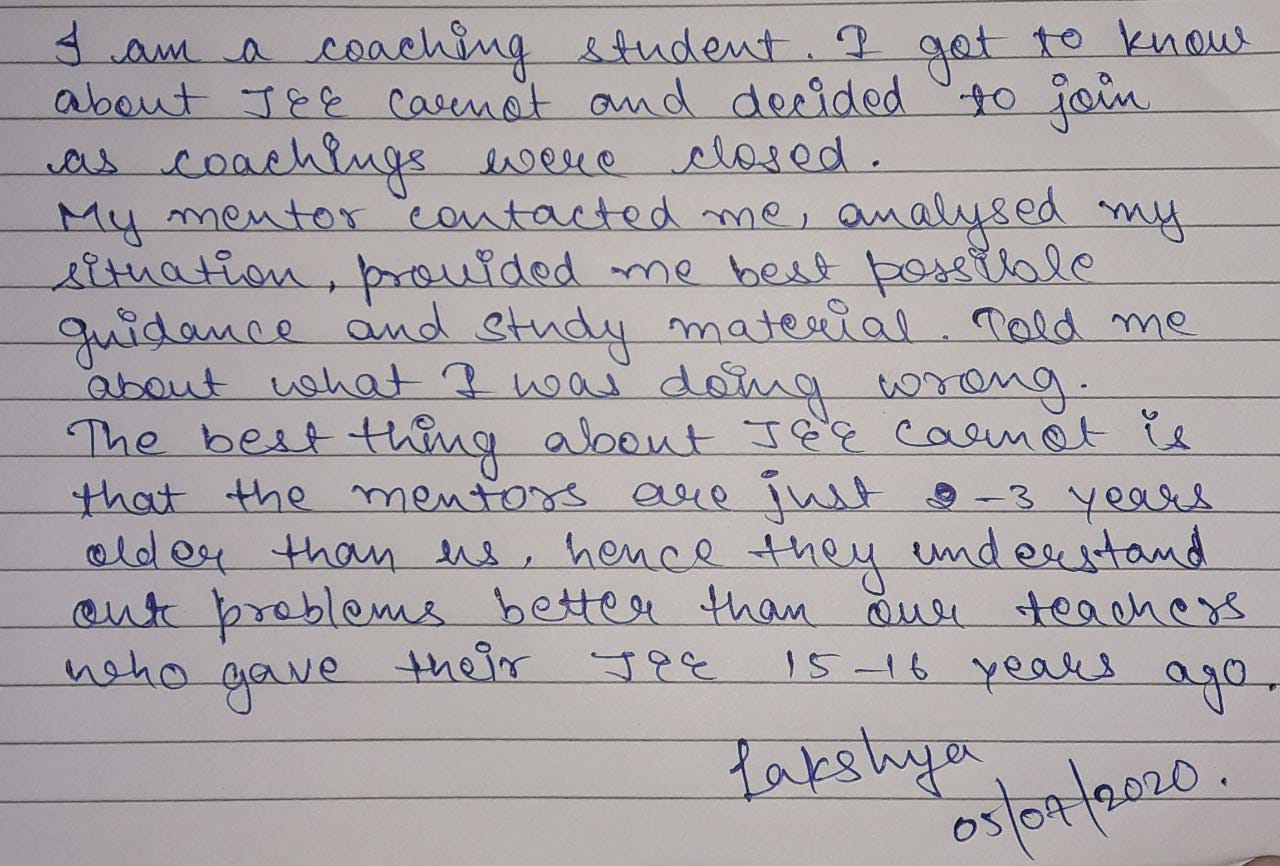 I am a coaching student. I got to know
about JEE Carnot and decided to join
as coachings were closed.
My mentor contacted me, analysed my
situation, provided me best possible
guidance and study material. Told me
about what I was doing wrong.
The best thing about JEE Carnot is
that the mentors are just -3 years
older than us, hence they understand
our problems better than our teachers
who gave their JEE 15-16 years ago.
Lakshya
05/07/2020.